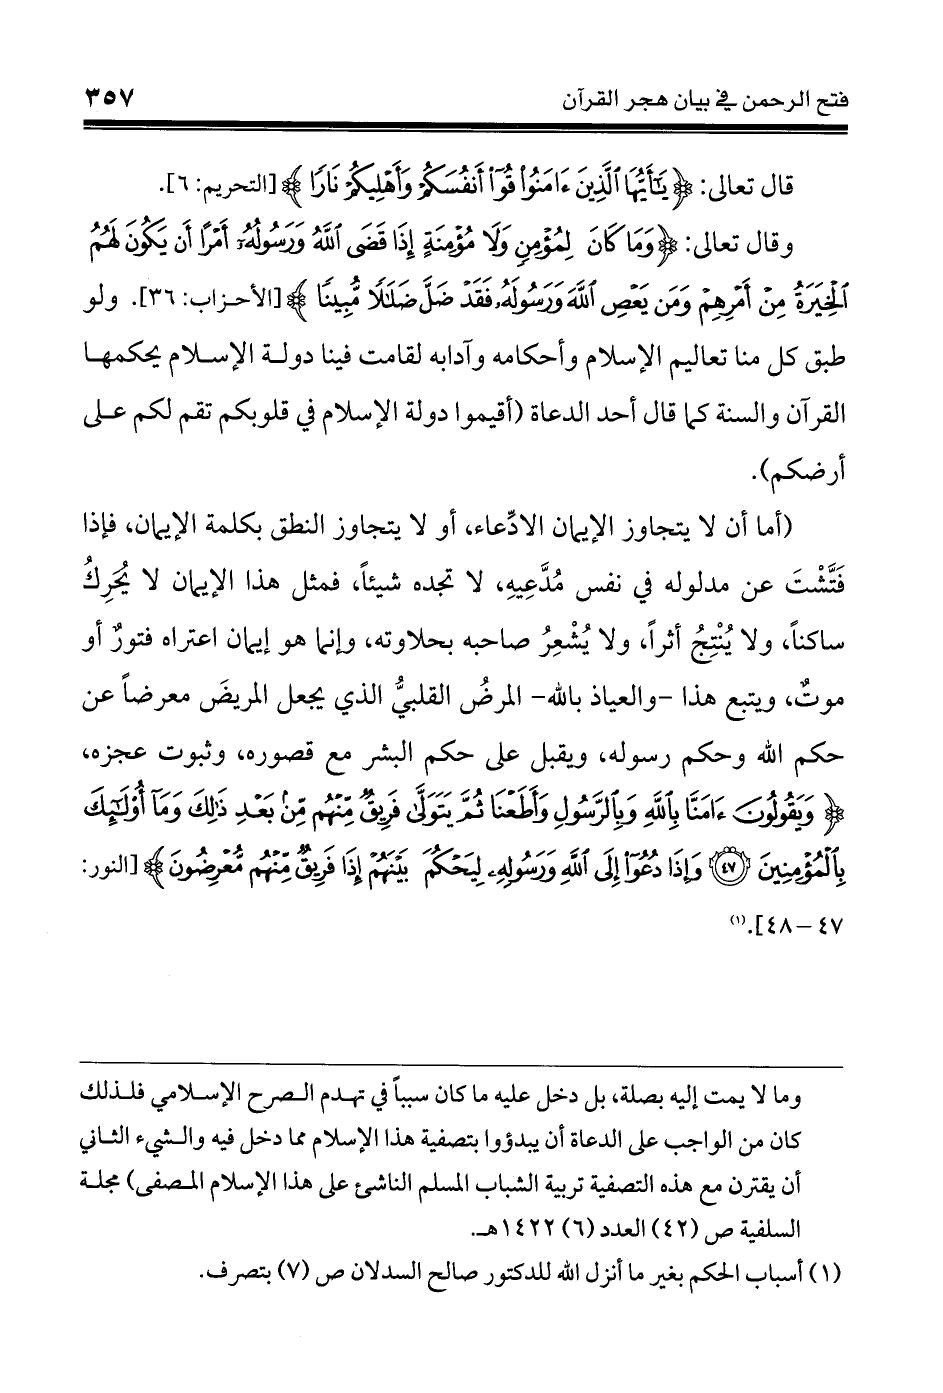 فتح الرحمن في بيان هجر القرآن ٣٥٧
قال تعالى: ﴿يَٰٓأَيُّهَا ٱلَّذِينَ ءَامَنُوا۟ قُوٓا۟ أَنفُسَكُمْ وَأَهْلِيكُمْ نَارًا﴾ [التحريم: ٦].
وقال تعالى: ﴿وَمَا كَانَ لِمُؤْمِنٍ وَلَا مُؤْمِنَةٍ إِذَا قَضَى ٱللَّهُ وَرَسُولُهُۥٓ أَمْرًا أَن يَكُونَ لَهُمُ
ٱلْخِيَرَةُ مِنْ أَمْرِهِمْ وَمَن يَعْصِ ٱللَّهَ وَرَسُولَهُۥ فَقَدْ ضَلَّ ضَلَٰلًا مُّبِينًا﴾ [الأحزاب: ٣٦]. ولو
طبق كل منا تعاليم الإسلام وأحكامه وآدابه لقامت فينا دولة الإسلام يحكمها
القرآن والسنة كما قال أحد الدعاة (أقيموا دولة الإسلام في قلوبكم تقم لكم على
أرضكم).
(أما أن لا يتجاوز الإيمان الادِّعاء، أو لا يتجاوز النطق بكلمة الإيمان، فإذا
فَتَّشْتَ عن مدلوله في نفس مُدَّعِيهِ، لا تجده شيئاً، فمثل هذا الإيمان لا يُحَرِكُ
ساكناً، ولا يُنْتِجُ أثراً، ولا يُشْعِرُ صاحبه بحلاوته، وإنما هو إيمان اعتراه فتورٌ أو
موتٌ، ويتبع هذا -والعياذ بالله- المرضُ القلبيُّ الذي يجعل المريضَ معرضاً عن
حكم الله وحكم رسوله، ويقبل على حكم البشر مع قصوره، وثبوت عجزه،
﴿وَيَقُولُونَ ءَامَنَّا بِٱللَّهِ وَبِٱلرَّسُولِ وَأَطَعْنَا ثُمَّ يَتَوَلَّىٰ فَرِيقٌ مِّنْهُم مِّنۢ بَعْدِ ذَٰلِكَ وَمَآ أُو۟لَٰٓئِكَ
بِٱلْمُؤْمِنِينَ ٤٧ وَإِذَا دُعُوٓا۟ إِلَى ٱللَّهِ وَرَسُولِهِۦ لِيَحْكُمَ بَيْنَهُمْ إِذَا فَرِيقٌ مِّنْهُم مُّعْرِضُونَ﴾ [النور:
٤٧ – ٤٨].(١)
وما لا يمت إليه بصلة، بل دخل عليه ما كان سبباً في تهدم الصرح الإسلامي فلذلك
كان من الواجب على الدعاة أن يبدؤوا بتصفية هذا الإسلام مما دخل فيه والشيء الثاني
أن يقترن مع هذه التصفية تربية الشباب المسلم الناشئ على هذا الإسلام المصفى) مجلة
السلفية ص (٤٢) العدد (٦) ١٤٢٢هـ.
(١) أسباب الحكم بغير ما أنزل الله للدكتور صالح السدلان ص (٧) بتصرف.